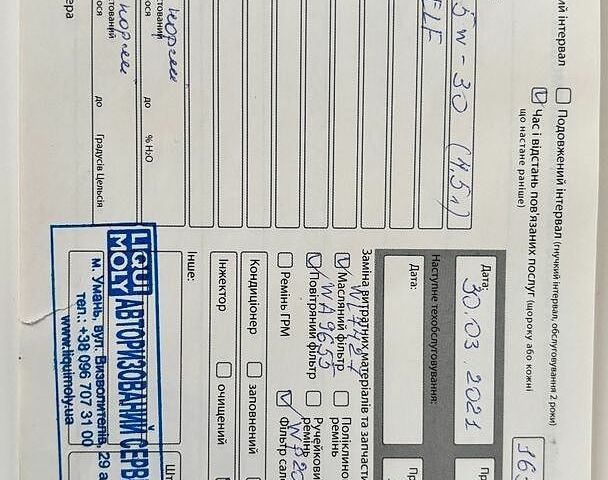 ий інтервал
Подовжений інтервал (гнучкий інтервал, обслуговування 2 роки)
Час і відстань пов'язаних послуг (щороку або кожні
що настане раніше)
5w-30 (4,5л)
ELF
Дата:
30.03.2021
Наступне техобслуговування:
Дата:
Заміна витратних матеріалів та запчасти
Масляний фільтр
Поліклино
ремінь
Повітряний фільтр
WA9655
Ручейкови
ремінь
Ремінь ГРМ
Фільтр сало
Кондиціонер
заповнений
Інжектор
очищений
Інше:
Шт
тований
ося
норми
до
% H2O
тований
ося
норми
до
Градусів Цельсія
ера
LIQUI
MOLY
АВТОРИЗОВАНИЙ СЕРВ
м. Умань, вул. Визволителів, 29 а
тел.: +38 096 707 31 00
www.liquimoly.ua